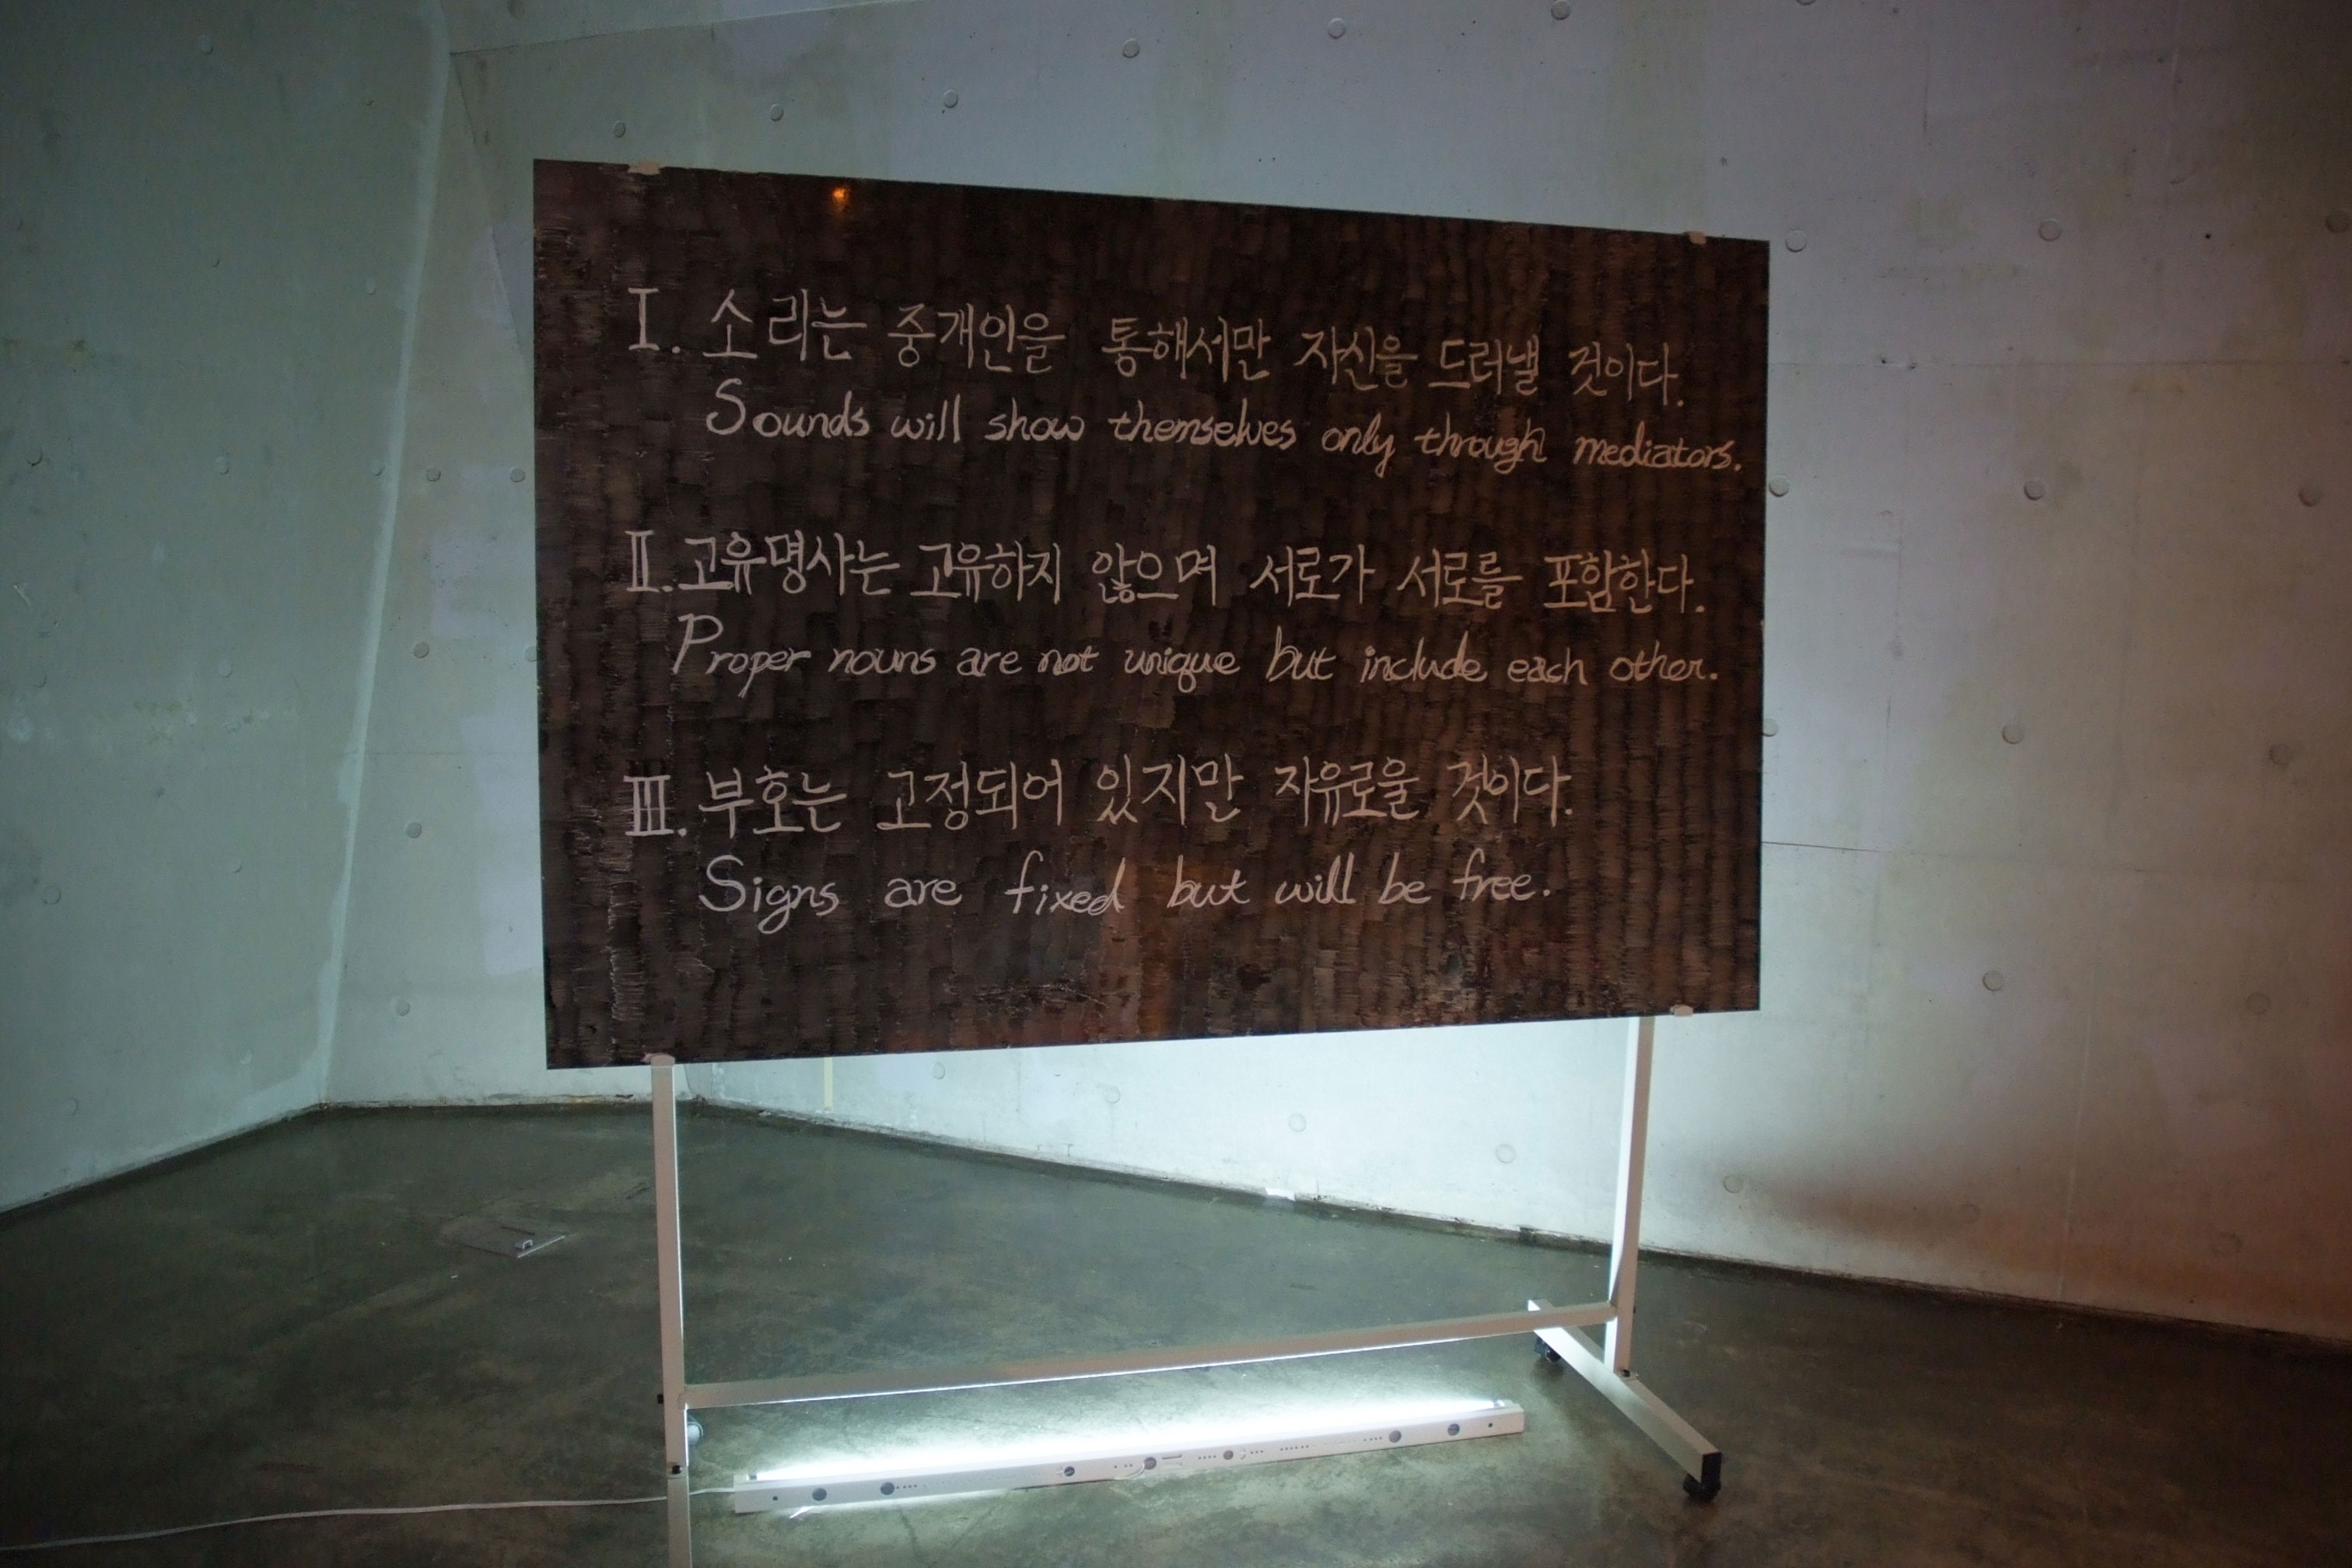 Ⅰ. 소리는 중개인을 통해서만 자신을 드러낼 것이다.
Sounds will show themselves only through mediators.
Ⅱ. 고유명사는 고유하지 않으며 서로가 서로를 포함한다.
Proper nouns are not unique but include each other.
Ⅲ. 부호는 고정되어 있지만 자유로울 것이다.
Signs are fixed but will be free.